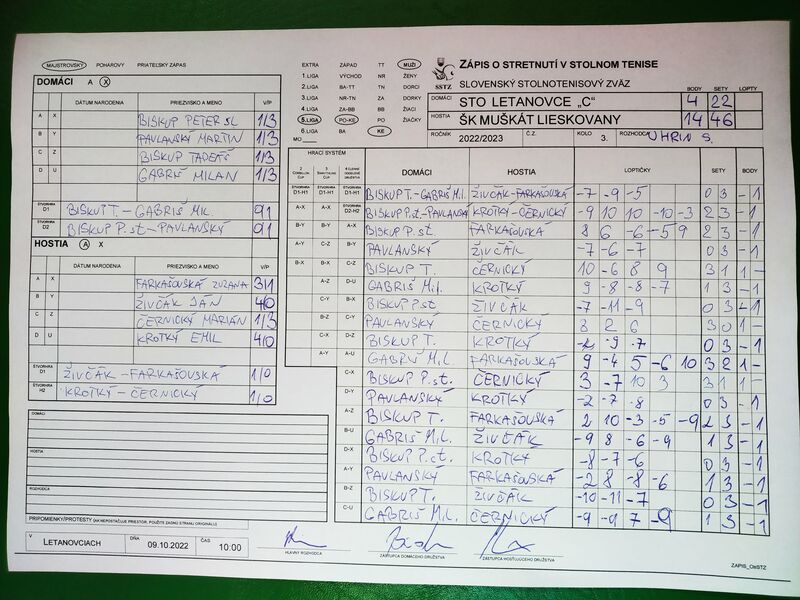 MAJSTROVSKÝ POHÁROVÝ PRIATEĽSKÝ ZÁPAS
DOMÁCI A X
DÁTUM NARODENIA PRIEZVISKO A MENO V/P
A X BISKUP PETER st. 1/3
B Y PAVLANSKÝ MARTIN 1/3
C Z BISKUP TADEÁŠ 1/3
D U GABRIŠ MILAN 1/3
ŠTVORHRA D1 BISKUP T. - GABRIŠ MIL. 0/1
ŠTVORHRA D2 BISKUP P.st - PAVLANSKÝ 0/1
HOSTIA A X
DÁTUM NARODENIA PRIEZVISKO A MENO V/P
A X FARKAŠOVSKÁ ZUZANA 3/1
B Y ŽIVČÁK JÁN 4/0
C Z ČERNICKÝ MARIÁN 1/3
D U KROTKÝ EMIL 4/0
ŠTVORHRA H1 ŽIVČÁK - FARKAŠOVSKÁ 1/0
ŠTVORHRA H2 KROTKÝ - ČERNICKÝ 1/0
DOMÁCI
HOSTIA
ROZHODCA
PRIPOMIENKY/PROTESTY (AK NEPOSTAČUJE PRIESTOR, POUŽITE ZADNÚ STRANU ORIGINÁLU)
V LETANOVCIACH DŇA 09.10.2022 ČAS 10:00
HLAVNÝ ROZHODCA
ZÁSTUPCA DOMÁCEHO DRUŽSTVA
ZÁSTUPCA HOSŤUJÚCEHO DRUŽSTVA
ZAPIS_OsSTZ
EXTRA ZÁPAD TT MUŽI
1.LIGA VÝCHOD NR ŽENY
2.LIGA BA-TT TN DORCI
3.LIGA NR-TN ZA DORKY
4.LIGA ZA-BB BB ŽIACI
5.LIGA PO-KE PO ŽIAČKY
6.LIGA BA KE
MO
SSTZ
ZÁPIS O STRETNUTÍ V STOLNOM TENISE
SLOVENSKÝ STOLNOTENISOVÝ ZVÄZ
BODY SETY LOPTY
DOMÁCI STO LETANOVCE „C“ 4 22
HOSTIA ŠK MUŠKÁT LIESKOVANY 14 46
ROČNÍK 2022/2023 Č.Z. KOLO 3. ROZHODCA UHRIN S.
HRACÍ SYSTÉM
DOMÁCI HOSTIA LOPTIČKY SETY BODY
D1-H1 D1-H1 D1-H1 BISKUP T. - GABRIŠ Mil. ŽIVČÁK - FARKAŠOVSKÁ -7 -9 -5 0 3 -1
A-X A-X D2-H2 BISKUP P.st - PAVLANSKÝ KROTKÝ - ČERNICKÝ -9 10 10 -10 -3 2 3 -1
B-Y B-Y A-X BISKUP P.st FARKAŠOVSKÁ 8 6 -6 -5 9 2 3 -1
A-Y C-Z B-Y PAVLANSKÝ ŽIVČÁK -7 -6 -7 0 3 -1
B-X B-X C-Z BISKUP T. ČERNICKÝ 10 -6 8 9 3 1 1 -
A-Z D-U GABRIŠ Mil. KROTKÝ 9 -8 -8 -7 1 3 -1
C-Y B-X BISKUP P.st ŽIVČÁK -7 -11 -9 0 3 -1
B-Z C-Y PAVLANSKÝ ČERNICKÝ 8 2 6 3 0 1 -
C-X D-Z BISKUP T. KROTKÝ -2 -9 -7 0 3 -1
A-Y A-U GABRIŠ Mil. FARKAŠOVSKÁ 9 -4 5 -6 10 3 2 1 -
C-X BISKUP P.st. ČERNICKÝ 3 -7 10 3 3 1 1 -
D-Y PAVLANSKÝ KROTKÝ -2 -7 -8 0 3 -1
A-Z BISKUP T. FARKAŠOVSKÁ 2 10 -3 -5 -9 2 3 -1
B-U GABRIŠ Mil. ŽIVČÁK -9 8 -6 -9 1 3 -1
D-X BISKUP P.st. KROTKÝ -8 -7 -6 0 3 -1
A-Y PAVLANSKÝ FARKAŠOVSKÁ -2 8 -8 -6 1 3 -1
B-Z BISKUP T. ŽIVČÁK -10 -11 -7 0 3 -1
C-U GABRIŠ Mil. ČERNICKÝ -9 -9 7 -9 1 3 -1